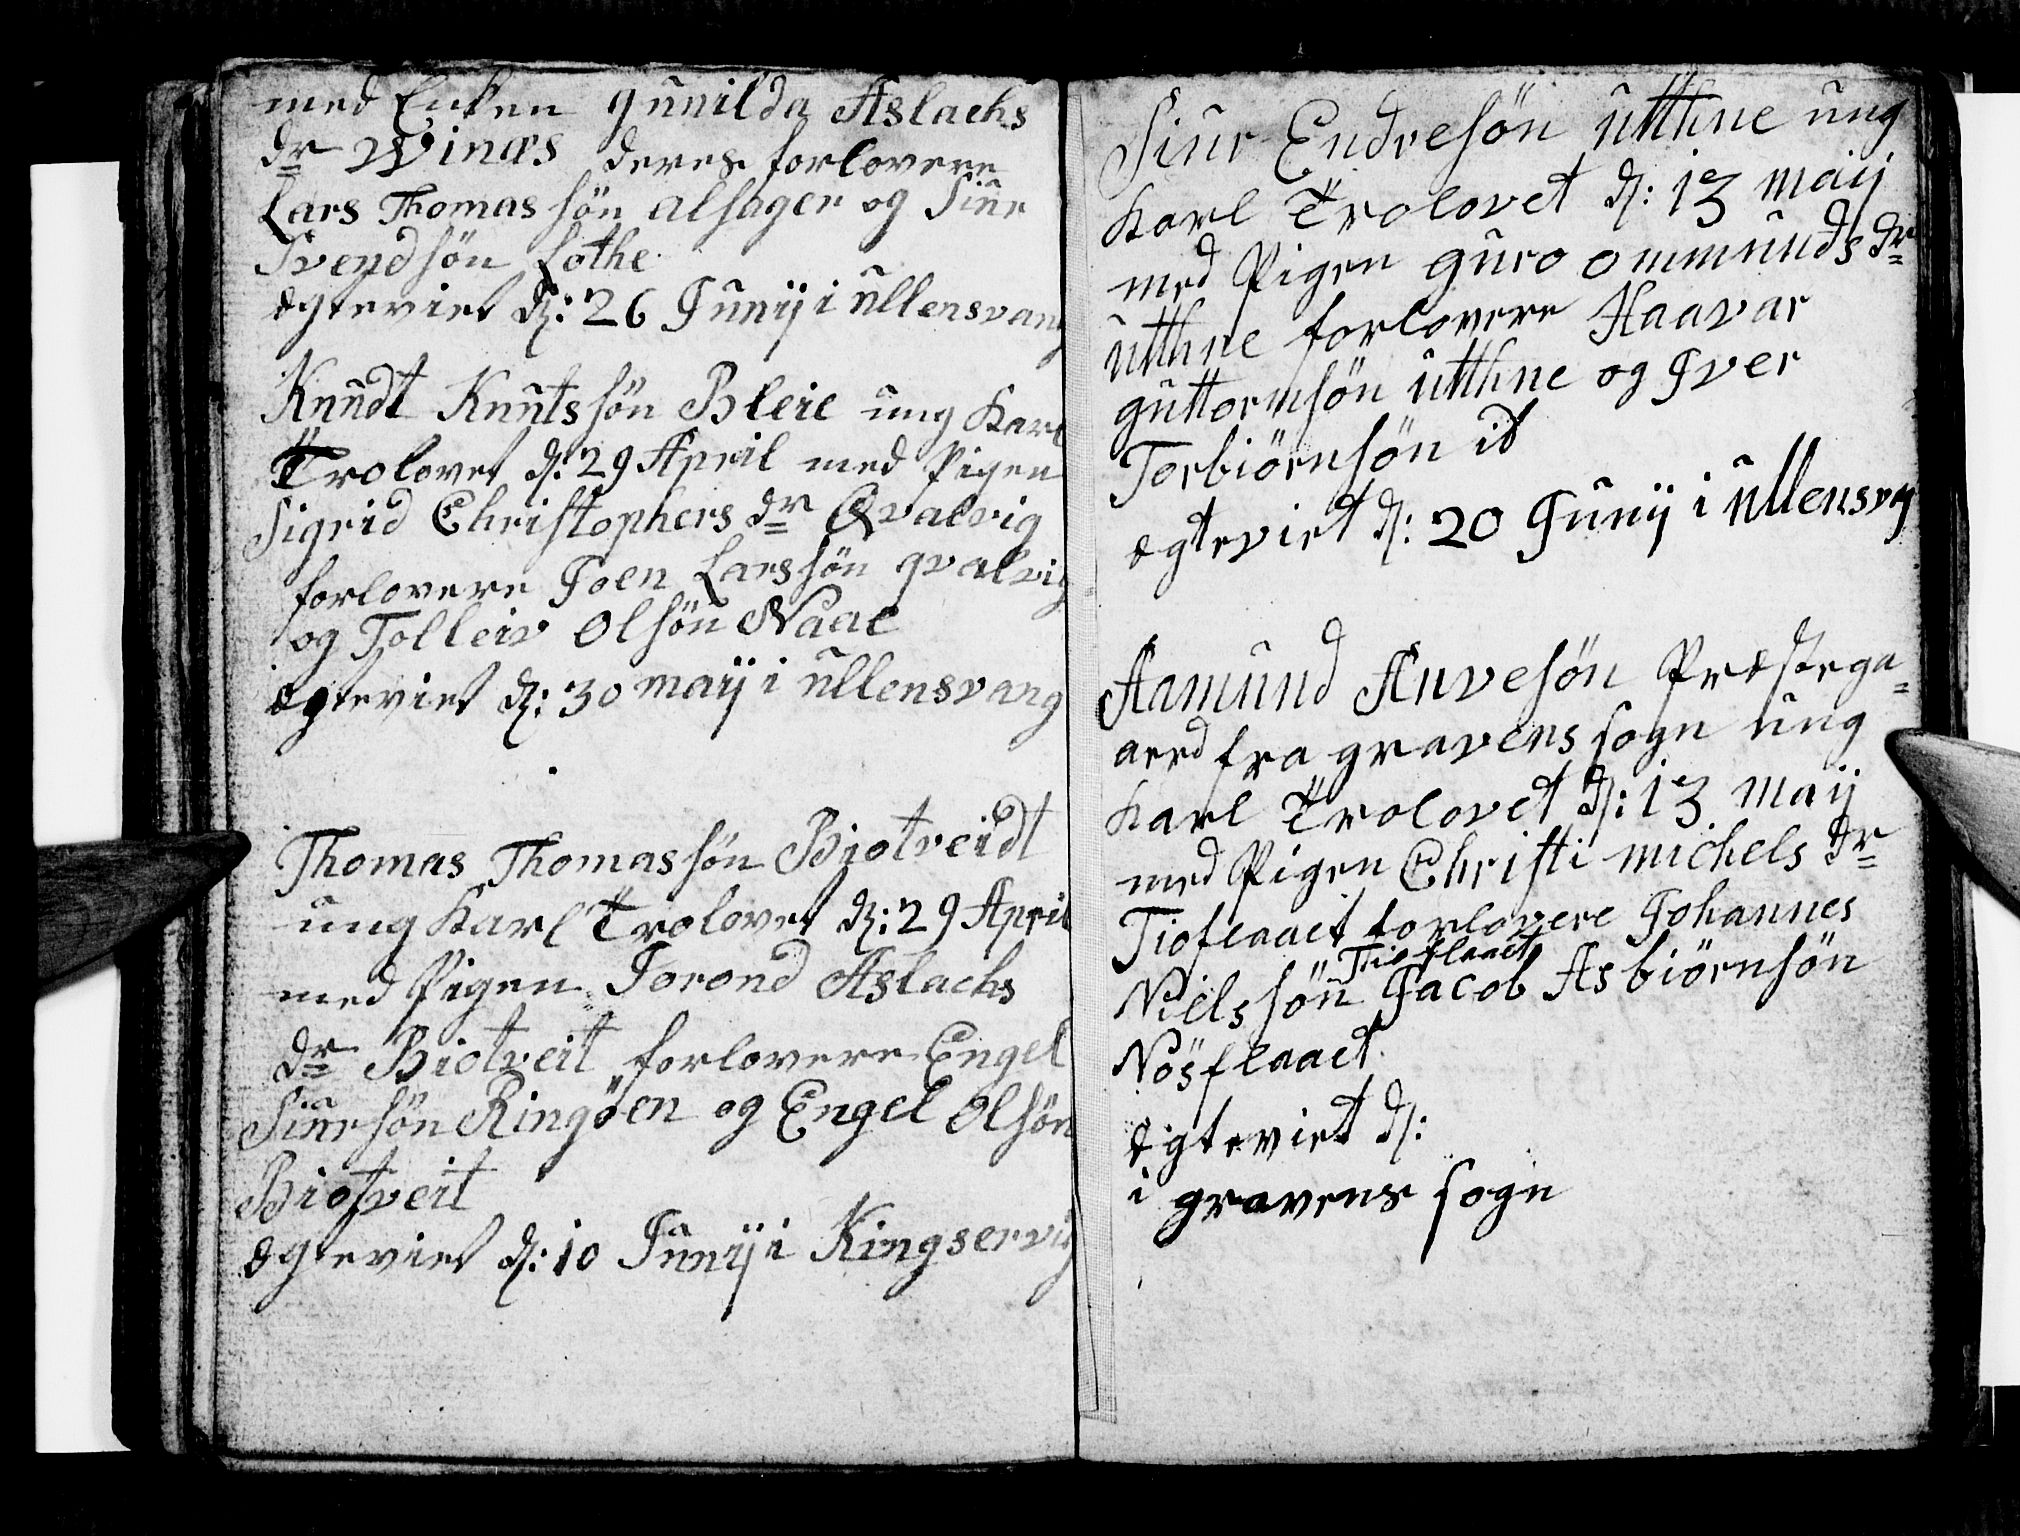 med Enken gunilda Aslachs
dr Winæs deres forlovere
Lars Thomas sön alsager og Siur
Svendsön Lothe
ægteviet d: 26 Junij i ullensvang
Knudt Knuts sön Bleie ung Karl
Trolovet d: 29 April med Pigen
Sigrid Christophers dr Qvalvig
forlovere Joen Lars sön qvalvig
og Tolleiv Olsön Naae
ægteviet d: 30 maij i ullensvang
Thomas Thomas sön Biotveidt
ung Karl Trolovet d: 29 April
med Pigen Jorond Aslachs
dr Biotveit forlovere Engel
Siursön Ringöen og Engel Olsön
Biotveit
ægteviet d: 10 Junij i Kingservig
Siur Endresön utthne ung
Karl Trolovet d: 13 maij
med Pigen guro ommunds dr
utthne forlovere Haavar
guttormsön utthne og Iver
Torbiörnsön id
ægteviet d: 20 Junij i ullensvg
Aamund Anvesön Præstega=
aerd fra gravens sogn ung
Karl Trolovet d: 13 maij
med Pigen Christi michels dr
Tioflaaet forlovere Johannes
Tioflaaet
Niels sön Jacob Asbiörnsön
Nösflaaet
ægteviet d:
i gravens sogn